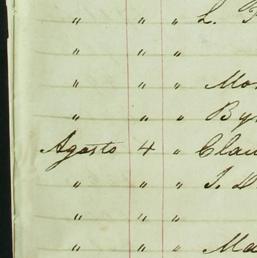 " " " L.
" " "
" " " Mo
" " " By
Agosto 4 " Clau
" " " J. D
" " "
" " " Ma